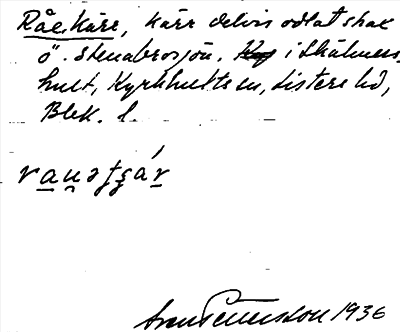 Råekärr, kärr delvis odlat strax
ö. Stenabrosjön. i Skälmers-
hult, Kyrkhults sn, Listers hd,
Blek. l.
Sven Petersson 1936